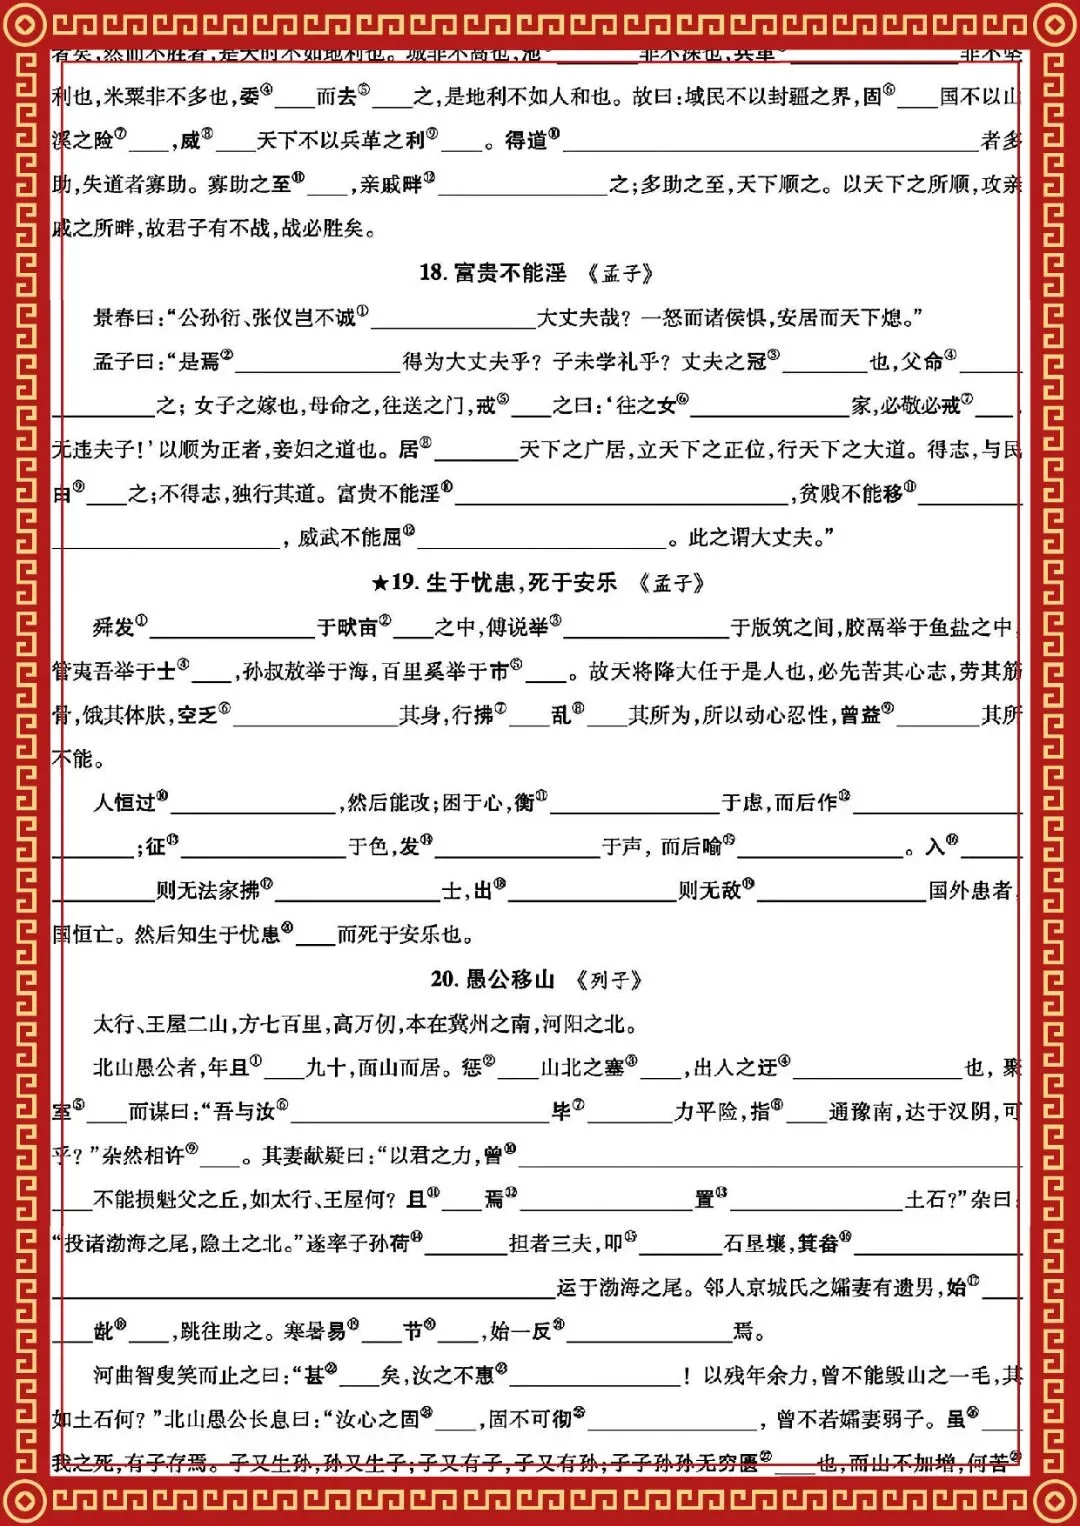 者矣,然而不胜者,是天时不如地利也。城非不高也,池________非不深也,兵革________________非不坚
利也,米粟非不多也,委④____而去⑤____之,是地利不如人和也。故曰:域民不以封疆之界,固⑥____国不以山
溪之险⑦____,威⑧____天下不以兵革之利⑨____。得道⑩________________________________________者多
助,失道者寡助。寡助之至⑪____,亲戚畔⑫________________之;多助之至,天下顺之。以天下之所顺,攻亲
戚之所畔,故君子有不战,战必胜矣。
18. 富贵不能淫 《孟子》
景春曰:“公孙衍、张仪岂不诚①________________大丈夫哉?一怒而诸侯惧,安居而天下熄。”
孟子曰:“是焉②________________得为大丈夫乎?子未学礼乎?丈夫之冠③________也,父命④______
__________之;女子之嫁也,母命之,往送之门,戒⑤____之曰:‘往之女⑥________________家,必敬必戒⑦____,
无违夫子!’以顺为正者,妾妇之道也。居⑧________天下之广居,立天下之正位,行天下之大道。得志,与民
由⑨____之;不得志,独行其道。富贵不能淫⑩________________________________,贫贱不能移⑪__________
______________________,威武不能屈⑫________________________。此之谓大丈夫。”
★19. 生于忧患,死于安乐 《孟子》
舜发①________________于畎亩②____之中,傅说举③________________于版筑之间,胶鬲举于鱼盐之中,
管夷吾举于士④____,孙叔敖举于海,百里奚举于市⑤____。故天将降大任于是人也,必先苦其心志,劳其筋
骨,饿其体肤,空乏⑥________________其身,行拂⑦____乱⑧____其所为,所以动心忍性,曾益⑨________其所
不能。
人恒过⑩________________,然后能改;困于心,衡⑪________________于虑,而后作⑫________________
________;征⑬________________于色,发⑭________________于声,而后喻⑮________________。入⑯______
__________则无法家拂⑰________________士,出⑱________________则无敌⑲________________国外患者,
国恒亡。然后知生于忧患⑳____而死于安乐也。
20. 愚公移山 《列子》
太行、王屋二山,方七百里,高万仞,本在冀州之南,河阳之北。
北山愚公者,年且①____九十,面山而居。惩②____山北之塞③____,出入之迂④________________也,聚
室⑤____而谋曰:“吾与汝⑥________________________毕⑦________力平险,指⑧____通豫南,达于汉阴,可
乎?”杂然相许⑨____。其妻献疑曰:“以君之力,曾⑩________________________________________________
____不能损魁父之丘,如太行、王屋何?且⑪____焉⑫________________置⑬________________土石?”杂曰:
“投诸渤海之尾,隐土之北。”遂率子孙荷⑭________担者三夫,叩⑮________石垦壤,箕畚⑯________________
________________________________________________运于渤海之尾。邻人京城氏之孀妻有遗男,始⑰____
____龀⑱____,跳往助之。寒暑易⑲____节⑳____,始一反㉑________________焉。
河曲智叟笑而止之曰:“甚㉒____矣,汝之不惠㉓________________!以残年余力,曾不能毁山之一毛,其
如土石何?”北山愚公长息曰:“汝心之固㉔____,固不可彻㉕________________,曾不若孀妻弱子。虽㉖____
我之死,有子存焉。子又生孙,孙又生子;子又有子,子又有孙;子子孙孙无穷匮㉗____也,而山不加增,何苦㉘